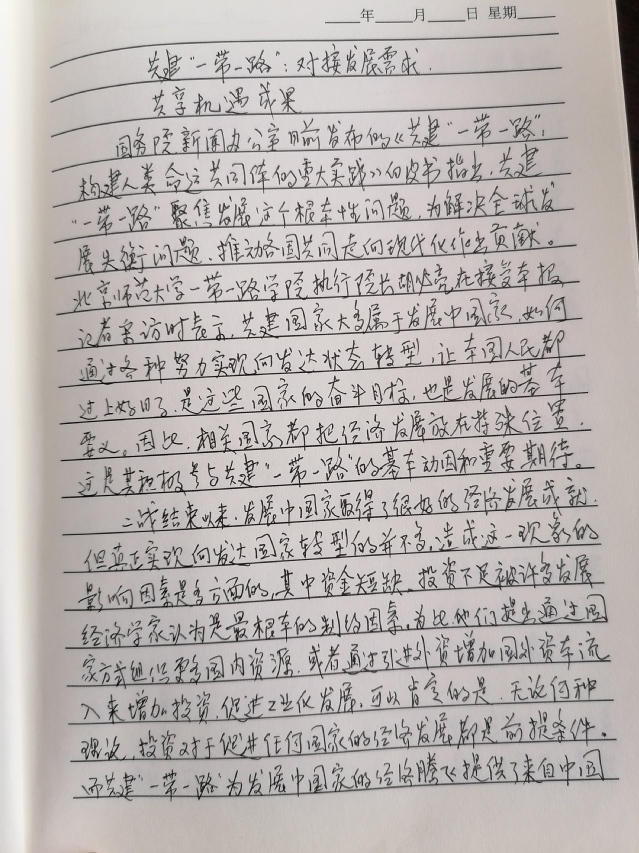 年 月 日 星期
共建“一带一路”:对接发展需求.
共享机遇成果
国务院新闻办公室日前发布的《共建“一带一路”:
构建人类命运共同体的重大实践》白皮书指出,共建
“一带一路”聚焦发展这个根本性问题,为解决全球发
展失衡问题、推动各国共同走向现代化作出贡献。
北京师范大学一带一路学院执行院长胡必亮在接受本报
记者采访时表示,共建国家大多属于发展中国家,如何
通过各种努力实现向发达状态转型,让本国人民都
过上好日子,是这些国家的奋斗目标,也是发展的基本
要义。因此,相关国家都把经济发展放在特殊位置.
这是其积极参与共建“一带一路”的基本动因和重要期待。
二战结束以来,发展中国家取得了很好的经济发展成就.
但真正实现向发达国家转型的并不多,造成这一现象的
影响因素是多方面的,其中资金短缺、投资不足被许多发展
经济学家认为是最根本的制约因素.为此他们提出通过国
家方式组织更多国内资源.或者通过引进外资增加国外资本流
入来增加投资,促进工业化发展,可以肯定的是,无论何种
理论,投资对于促进任何国家的经济发展都是前提条件。
而共建“一带一路”为发展中国家的经济腾飞提供了来自中国